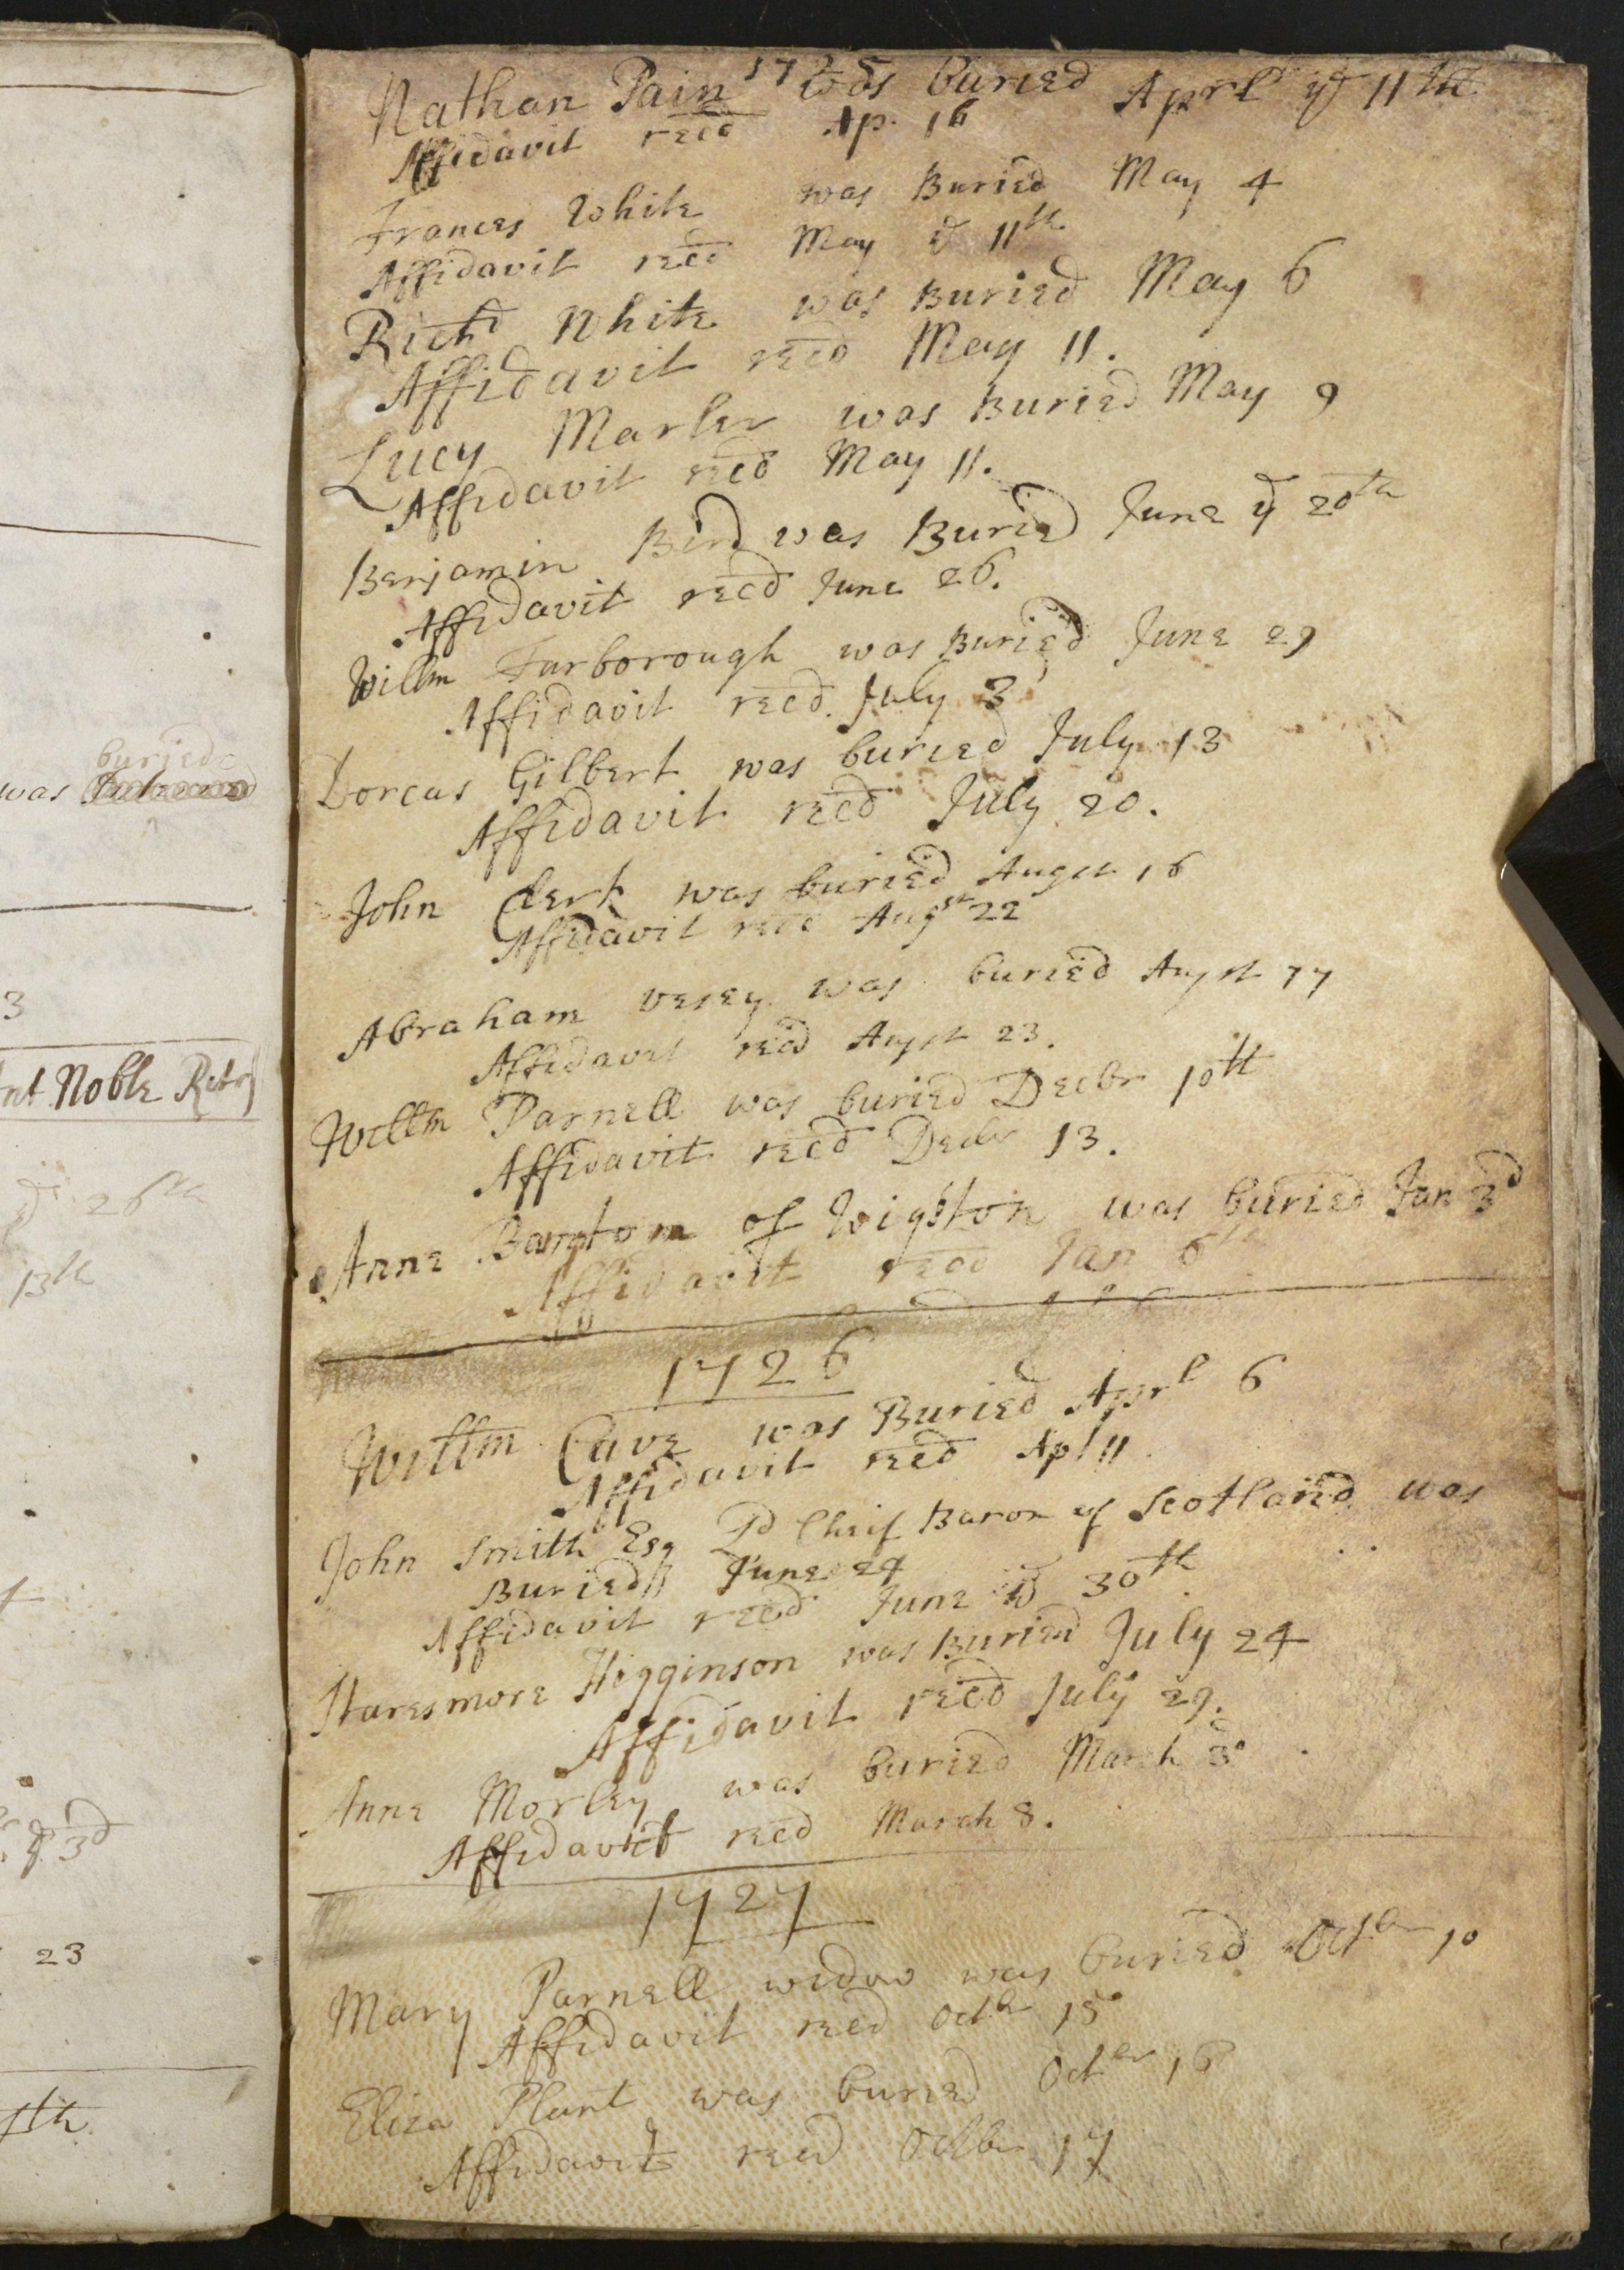 was buried
3
Noble
26th
13th
3d
23
1725
Nathan Pain was buried Aprl ye 11th
Affidavit recd Ap. 16
Frances White was Buried May 4
Affidavit recd May ye 11th
Richd White was Buried May 6
Affidavit recd May 11.
Lucy Marler was Buried May 9
Affidavit recd May 11.
Benjamin Bird was Buried June ye 20th
Affidavit recd June 26.
Willm Farborough was Buried June 29
Affidavit recd July 3
Dorcas Gilbert was buried July 13
Affidavit recd July 20.
John Clerk was buried Augst 16
Affidavit recd Augst 22
Abraham Vesey was buried Augst 17
Affidavit recd Augst 23.
Willm Parnell was buried Decbr 10th
Affidavit recd Decbr 13.
Anne of Wigston was buried Jan 3d
Affidavit recd Jan 6th
1726
Willm Cave was Buried Aprl 6
Affidavit recd Apl 11
John Smith Esq Ld Cheif Baron of Scotland was
Buried June 24
Affidavit recd June ye 30th
Staresmore Higginson was Buried July 24
Affidavit recd July 29.
Anne Morley was buried March 3d
Affidavit recd March 8.
1727
Mary Parnell widow was buried Octbr 10
Affidavit recd Octbr 15
Eliza Plant was buried Octbr 16
Affidavit recd Octbr 17